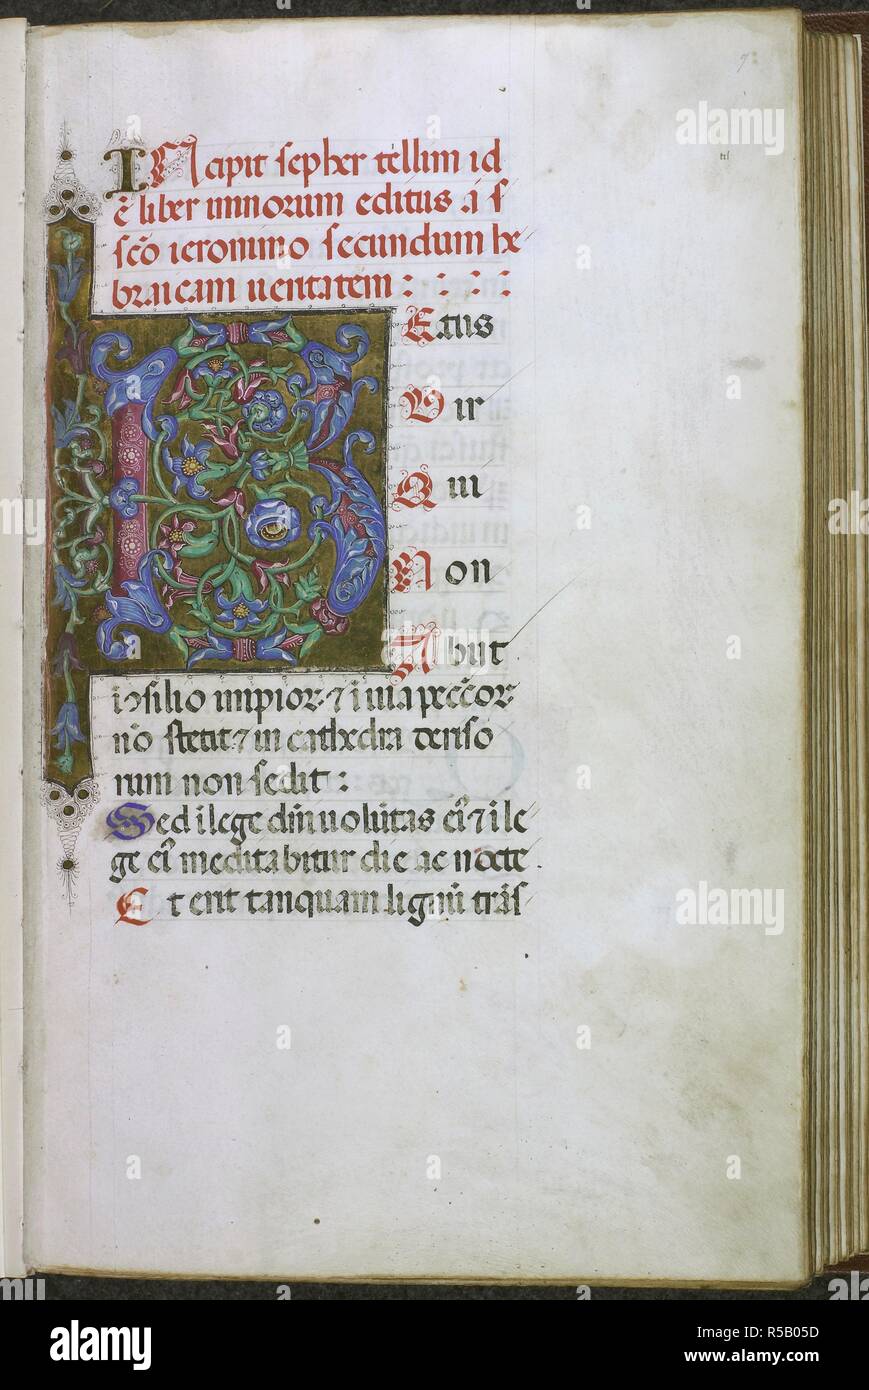 INcipit sepher tellim id
ē liber imnorum editus a s
sc̄o ieronimo secundum he
braicam ueritatem : : : :
BEatus
Vir
Qui
Non
Abut
i ↄsilio impior⁊ ī uia pecc̄or
nō stetit ⁊ in cathedra deriso
rum non sedit :
Sed ī lege dn̄i uolūtas ei⁊ ī le
ge ei᾽ meditabitur die ac nocte .
Et erit tanquam lignū trās
alamy stock photo
alamy
Image ID: R5B05D
www.alamy.com